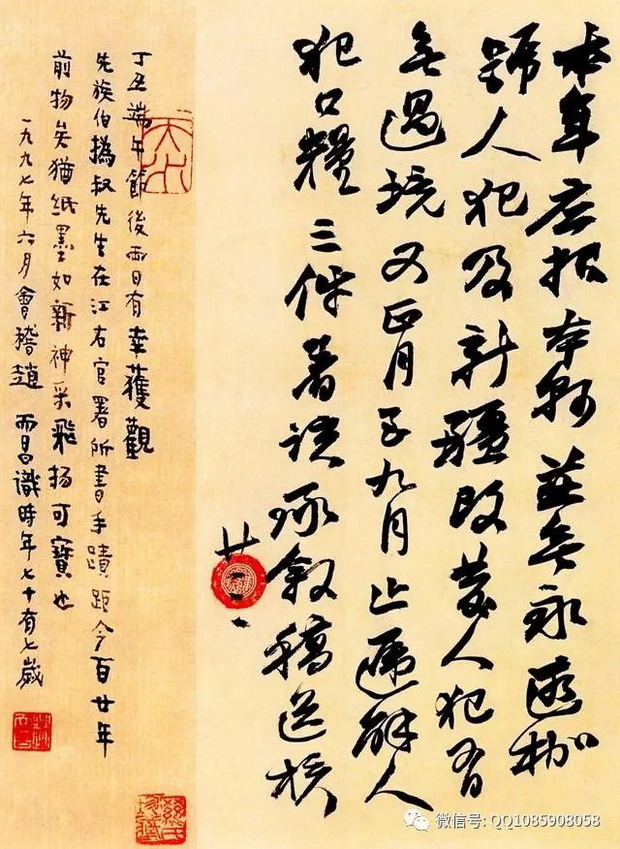 本年应报本縣並無永遠枷
號人犯及新疆改發人犯有
無過境又正月至九月止遞解人
犯口糧三件著該承敘稿送核
廿二
丁丑端午節後兩日有幸獲觀
先族伯撝叔先生在江右官署所書手蹟距今百廿年
前物矣猶紙墨如新神采飛揚可寶也
一九九七年六月會稽趙而昌識時年七十有七歲
天水
微信号: QQ1085908058